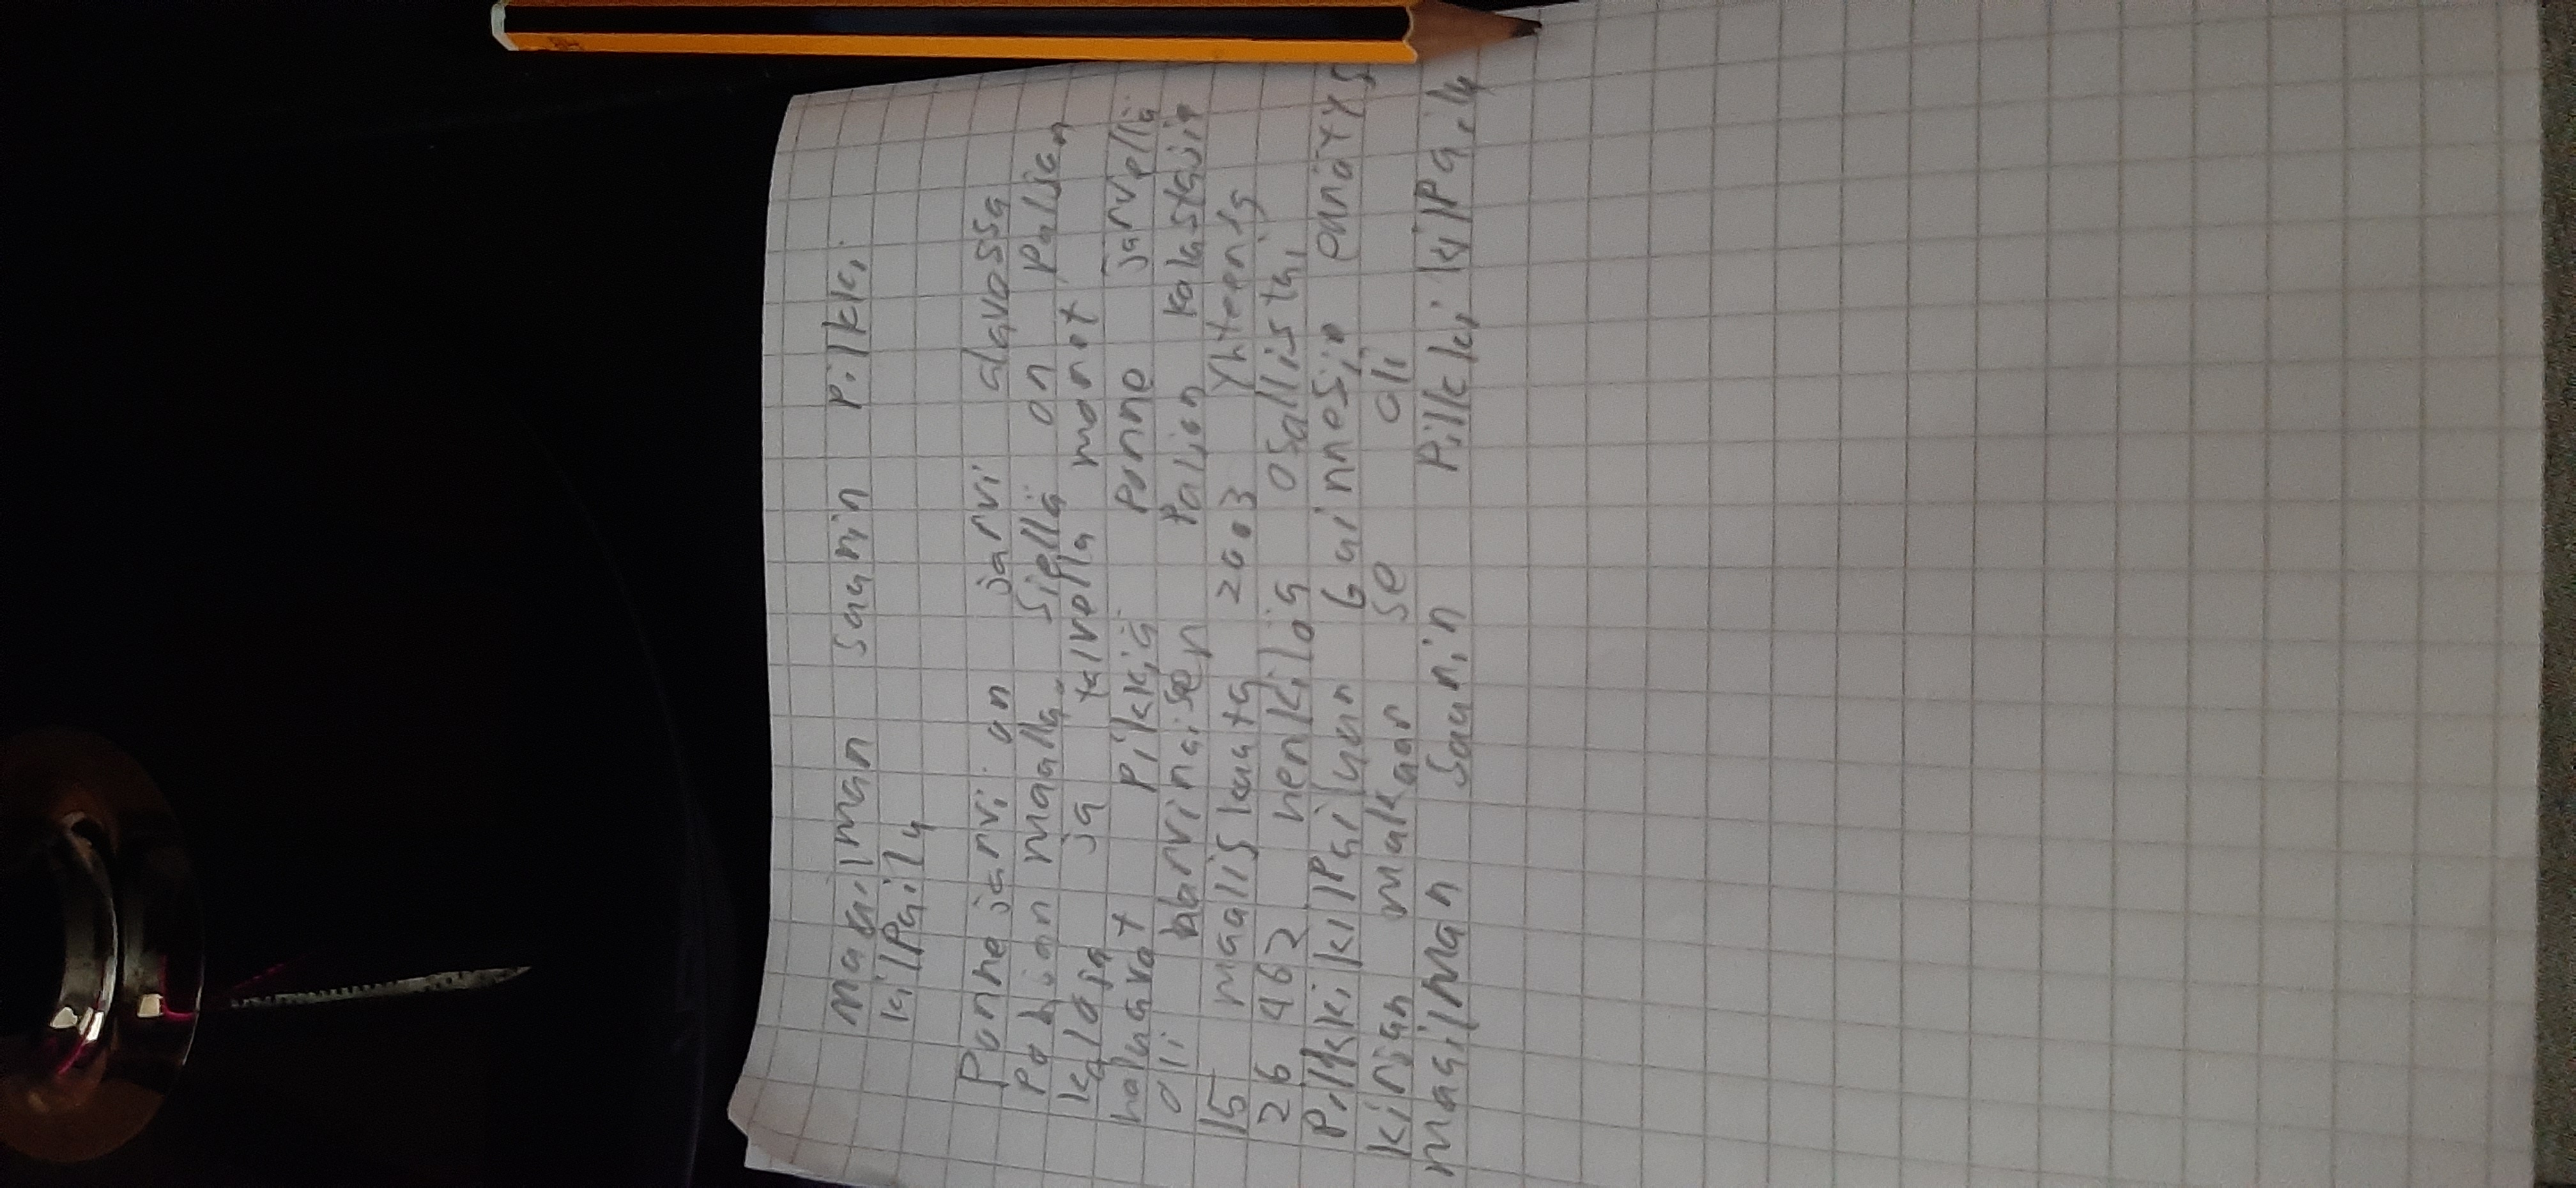 maailman Saarin Pilkki
kilpaily
Ponnejärvi on järvi alavossa
Pohjan maalla. Siellä on Paljon
kaloja ja talvella monot
haluavat Pilkkiä Ponne järvellä
oli harvinaisen Paljon kalastajia
15 maaliskuuta 2003 Yhteensä
26 462 henkilöä osallistui
Pilkki kilPailuun Guinnesin enätys
kirjan mukaan se oli
maailman Saarin Pilkki kilPaily